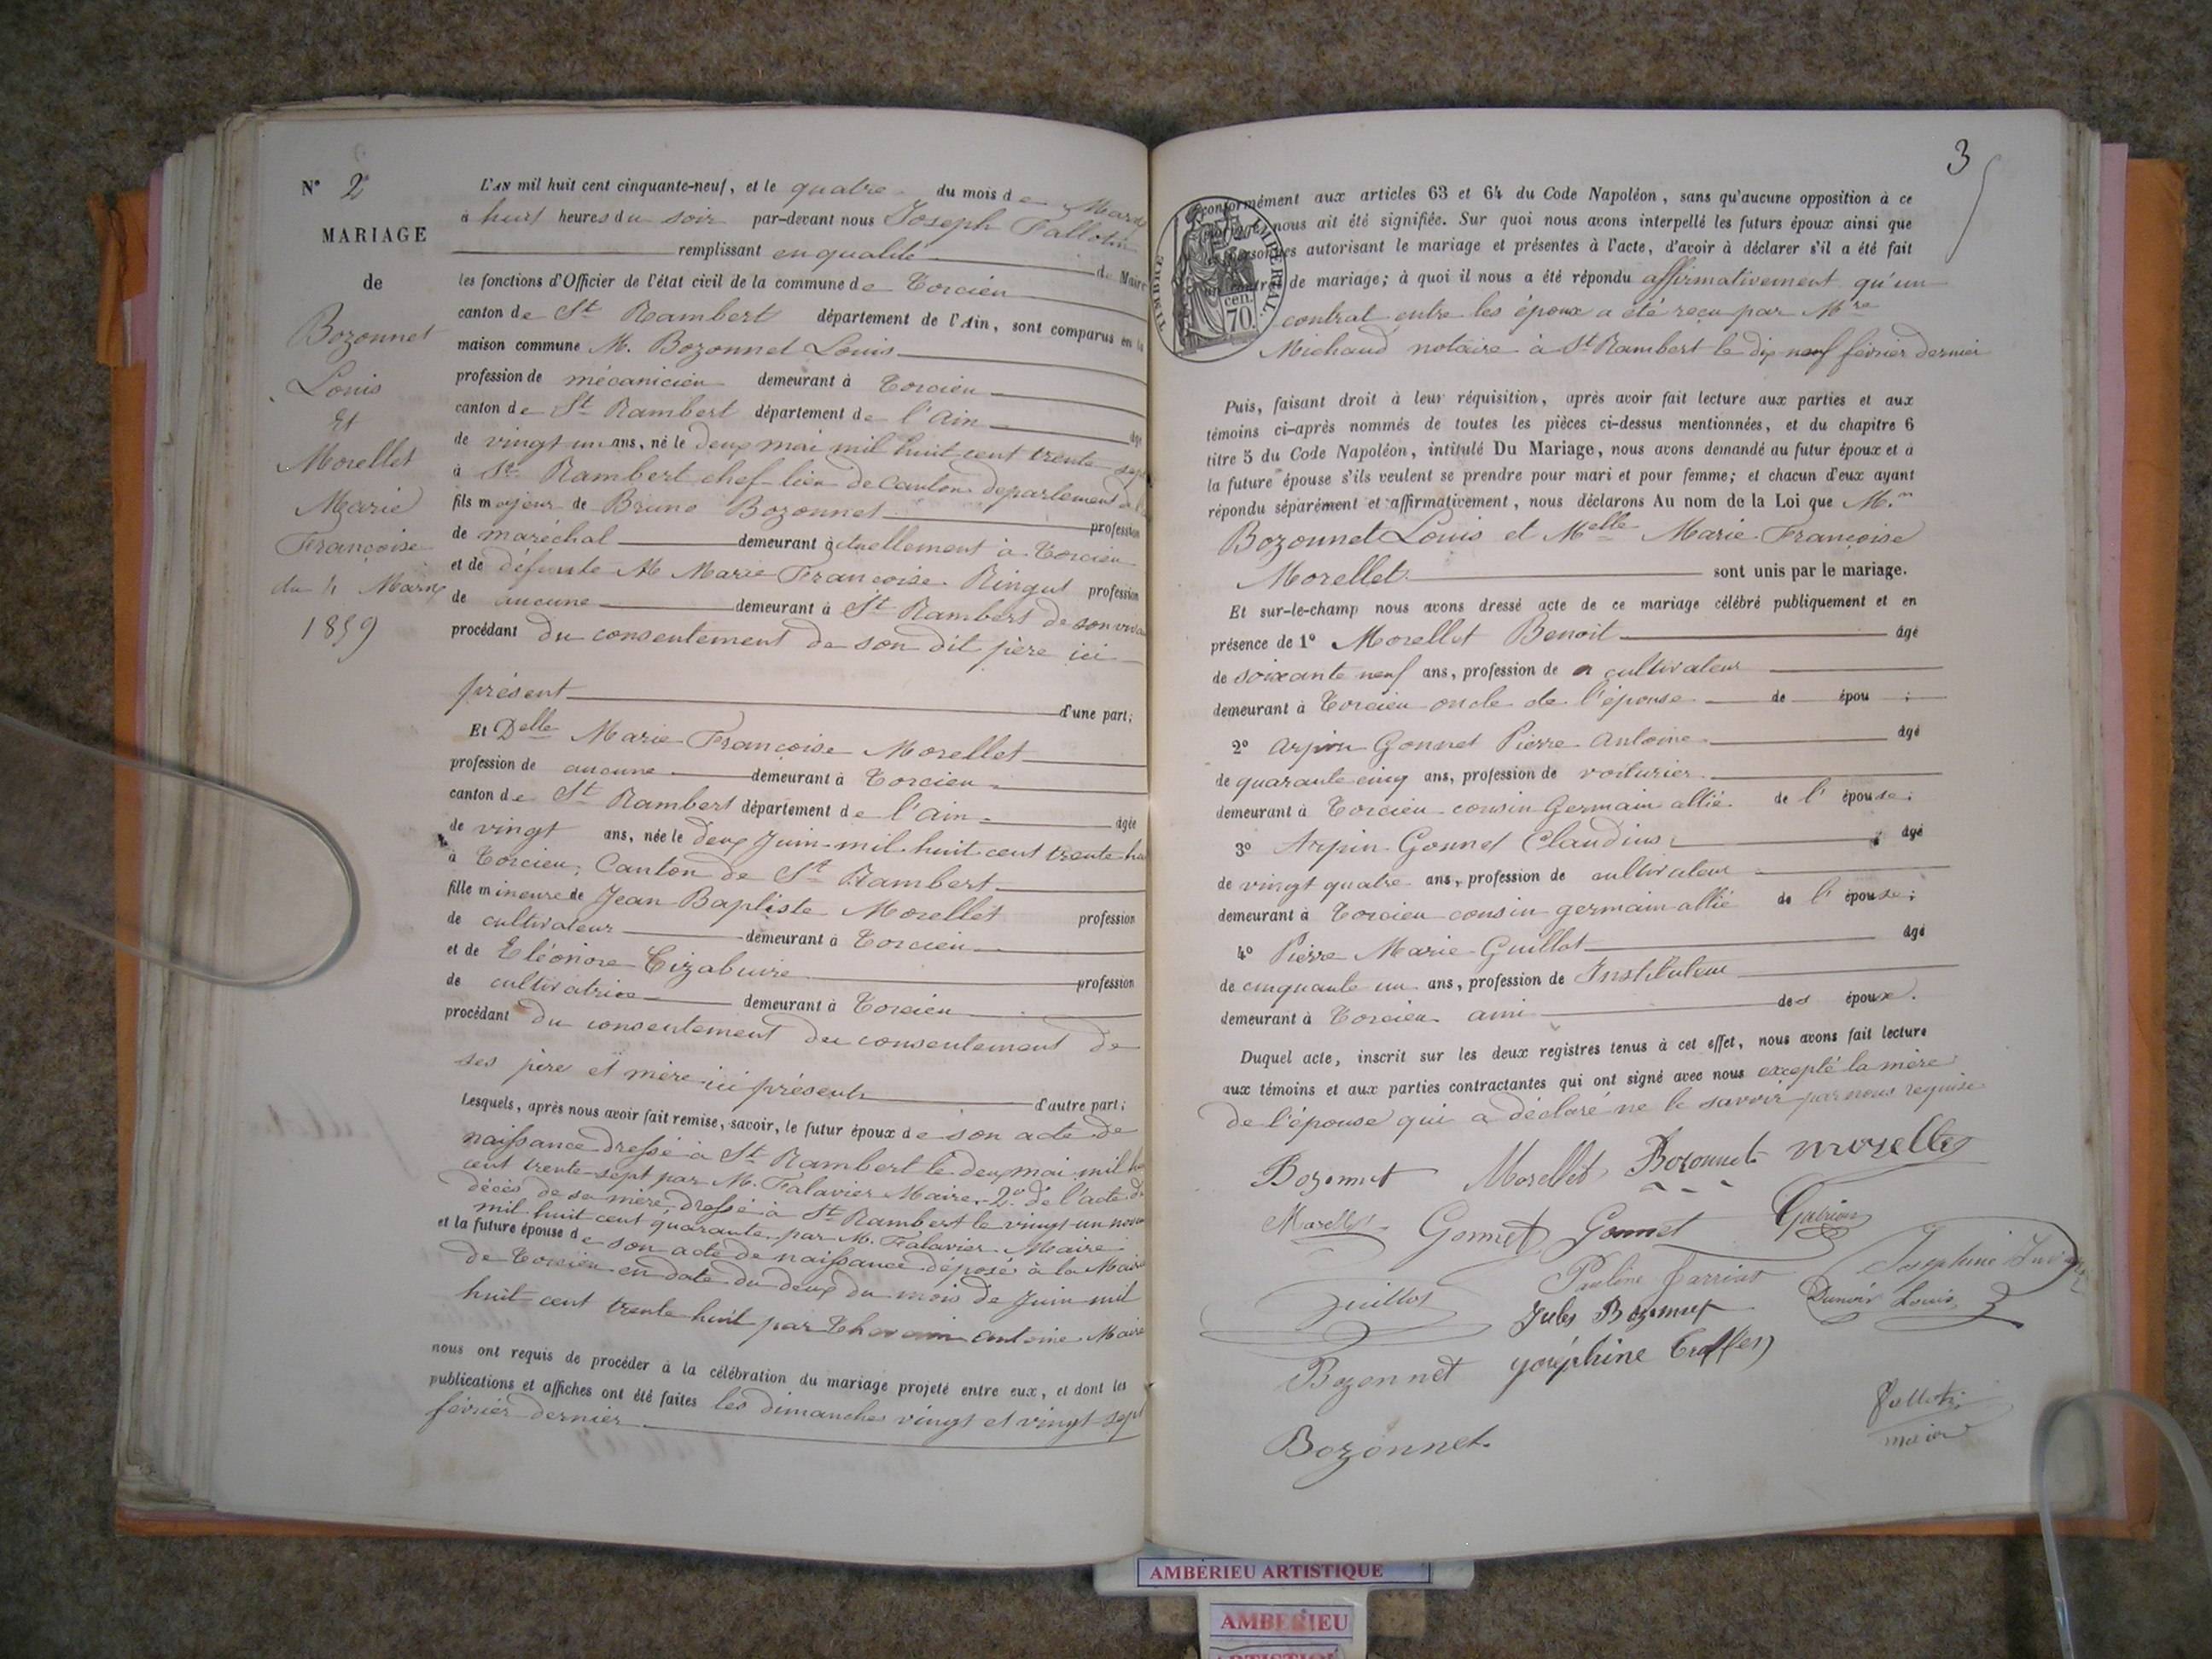 N° 2
MARIAGE
de
Bozonnet
Louis
Et
Morellet
Marie
Françoise
du 4 Mars
1859
L'AN mil huit cent cinquante-neuf, et le quatre du mois de Mars
à huit heures du soir par-devant nous Joseph Fallotin
remplissant en qualité de Maire
les fonctions d'Officier de l'état civil de la commune de Torcieu
canton de St Rambert département de l'Ain, sont comparus en la
maison commune M. Bozonnet Louis
profession de mécanicien demeurant à Torcieu
canton de St Rambert département de l'Ain âgé
de vingt un ans, né le deux mai mil huit cent trente sept
à St Rambert chef-lieu de Canton département de
fils majeur de Bruno Bozonnet profession
de maréchal demeurant actuellement à Torcieu
et de défunte Marie Françoise Ringut profession
de aucune demeurant à St Rambert de son
procédant du consentement de son dit père ici
présent d'une part;
Et Delle Marie Françoise Morellet
profession de aucune demeurant à Torcieu
canton de St Rambert département de l'Ain âgée
de vingt ans, née le deux Juin mil huit cent trente
à Torcieu, Canton de St Rambert
fille mineure de Jean Baptiste Morellet profession
de cultivateur demeurant à Torcieu
et de Eléonore Tizabuire profession
de cultivatrice demeurant à Torcieu
procédant du consentement du consentement de
ses père et mère ici présents d'autre part;
Lesquels, après nous avoir fait remise, savoir, le futur époux de son acte de
naissance dressé à St Rambert le deux mai mil
cent trente-sept par M. Falavier Maire. 2° de l'acte de
décès de sa mère dressé à St Rambert le vingt-un
mil huit cent quarante par M. Falavier Maire
et la future épouse de son acte de naissance déposé à la
de Torcieu en date du deux du mois de Juin mil
huit cent trente huit par Antoine Maire
nous ont requis de procéder à la célébration du mariage projeté entre eux, et dont les
publications et affiches ont été faites les dimanches vingt et vingt-sept
février dernier
3
TIMBRE IMPÉRIAL.
70 cen.
conformément aux articles 63 et 64 du Code Napoléon, sans qu'aucune opposition à ce
mariage nous ait été signifiée. Sur quoi nous avons interpellé les futurs époux ainsi que
les personnes autorisant le mariage et présentes à l'acte, d'avoir à déclarer s'il a été fait
un contrat de mariage; à quoi il nous a été répondu affirmativement qu'un
contrat entre les époux a été reçu par Mre
Michaud notaire à St Rambert le dix neuf février dernier
Puis, faisant droit à leur réquisition, après avoir fait lecture aux parties et aux
témoins ci-après nommés de toutes les pièces ci-dessus mentionnées, et du chapitre 6
titre 5 du Code Napoléon, intitulé Du Mariage, nous avons demandé au futur époux et à
la future épouse s'ils veulent se prendre pour mari et pour femme; et chacun d'eux ayant
répondu séparément et affirmativement, nous déclarons Au nom de la Loi que M.
Bozonnet Louis et Melle Marie Françoise
Morellet sont unis par le mariage.
Et sur-le-champ nous avons dressé acte de ce mariage célébré publiquement et en
présence de 1° Morellet Benoit âgé
de soixante neuf ans, profession de cultivateur
demeurant à Torcieu oncle de l'épouse de épou ;
2° Arpin Gonnet Pierre Antoine âgé
de quarante cinq ans, profession de voiturier
demeurant à Torcieu cousin Germain allié de l'épouse;
3° Arpin Gonnet Claudius âgé
de vingt quatre ans, profession de cultivateur
demeurant à Torcieu cousin germain allié de l'épouse;
4° Pierre Marie Guillot âgé
de cinquante un ans, profession de Instituteur
demeurant à Torcieu ami des époux.
Duquel acte, inscrit sur les deux registres tenus à cet effet, nous avons fait lecture
aux témoins et aux parties contractantes qui ont signé avec nous excepté la mère
de l'épouse qui a déclaré ne le savoir par nous requise
Bozonnet Morellet Bozonnet Morellet
Morellet Gonnet Gonnet
Guillot Pauline Joséphine
Jules Bozonnet Louis
Bozonnet Joséphine
Bozonnet.
maire
AMBÉRIEU ARTISTIQUE
AMBERIEU
ARTISTIQUE